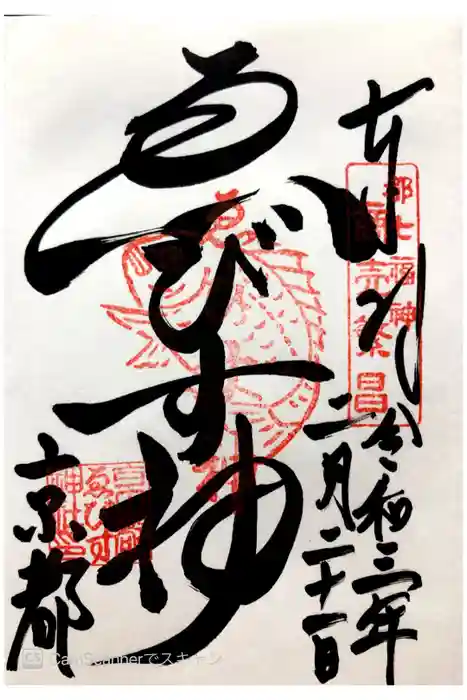 奉拝
都七福神
商売繁昌
令和三年
二月二十一日
ゑびす神
京都
ゑびす
神社
CS CamScannerでスキャン